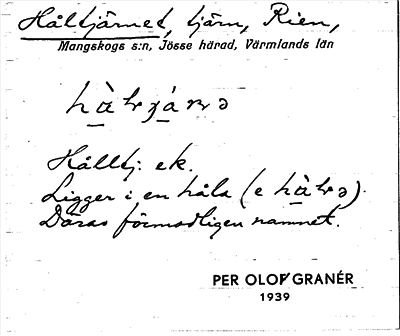 Håltjärnet, tjärn, Rien,
Mangskogs s:n, Jösse härad, Värmlands län
Hålltj: ek.
Ligger i en håla (e
Däras förmodligen namnet.
PER OLOF GRANÉR
1939